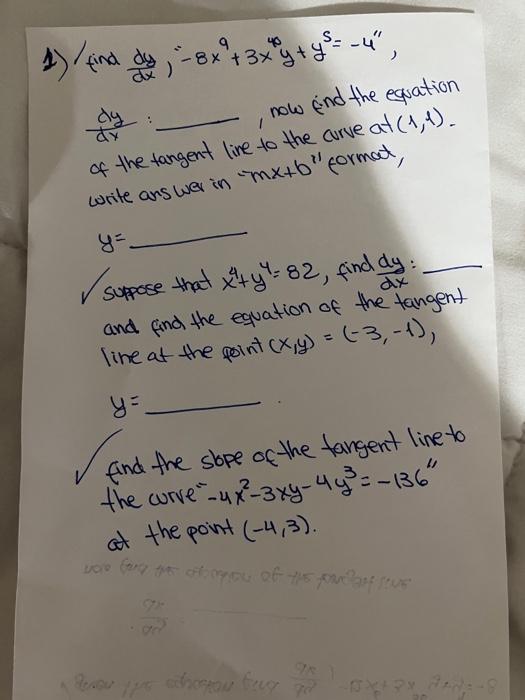 1) find dy/dx, "-8x⁹ + 3x⁴⁰y + y⁵ = -4",
dy/dx : ______, now find the equation
of the tangent line to the curve at (1,1).
write answer in "mx+b" format,
y= ______
✓ suppose that x⁴+y⁴= 82, find dy/dx : ______
and find the equation of the tangent
line at the point (x,y) = (-3,-1),
y= ______.
✓ find the slope of the tangent line to
the curve "-4x²-3xy-4y³ = -136"
at the point (-4,3).